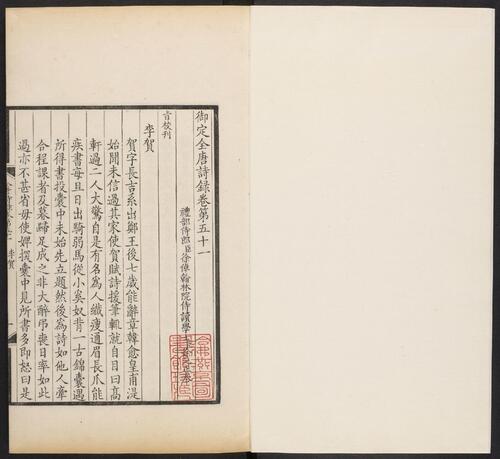 御定全唐詩錄卷第五十一
禮部侍郎臣徐倬翰林院侍讀學士
旨校刊
李賀
賀字長吉系出鄭王後七歲能辭章韓愈皇甫湜
始聞未信過其家使賀賦詩援筆輒就自目曰高
軒過二人大驚自是有名為人纖瘦通眉長爪能
疾書每旦日出騎弱馬從小奚奴背一古錦囊遇
所得書投囊中未始先立題然後為詩如他人牽
合程課者及暮歸足成之非大醉弔喪日率如此
過亦不甚省母使婢探囊中見所書多即怒曰是
李賀
一